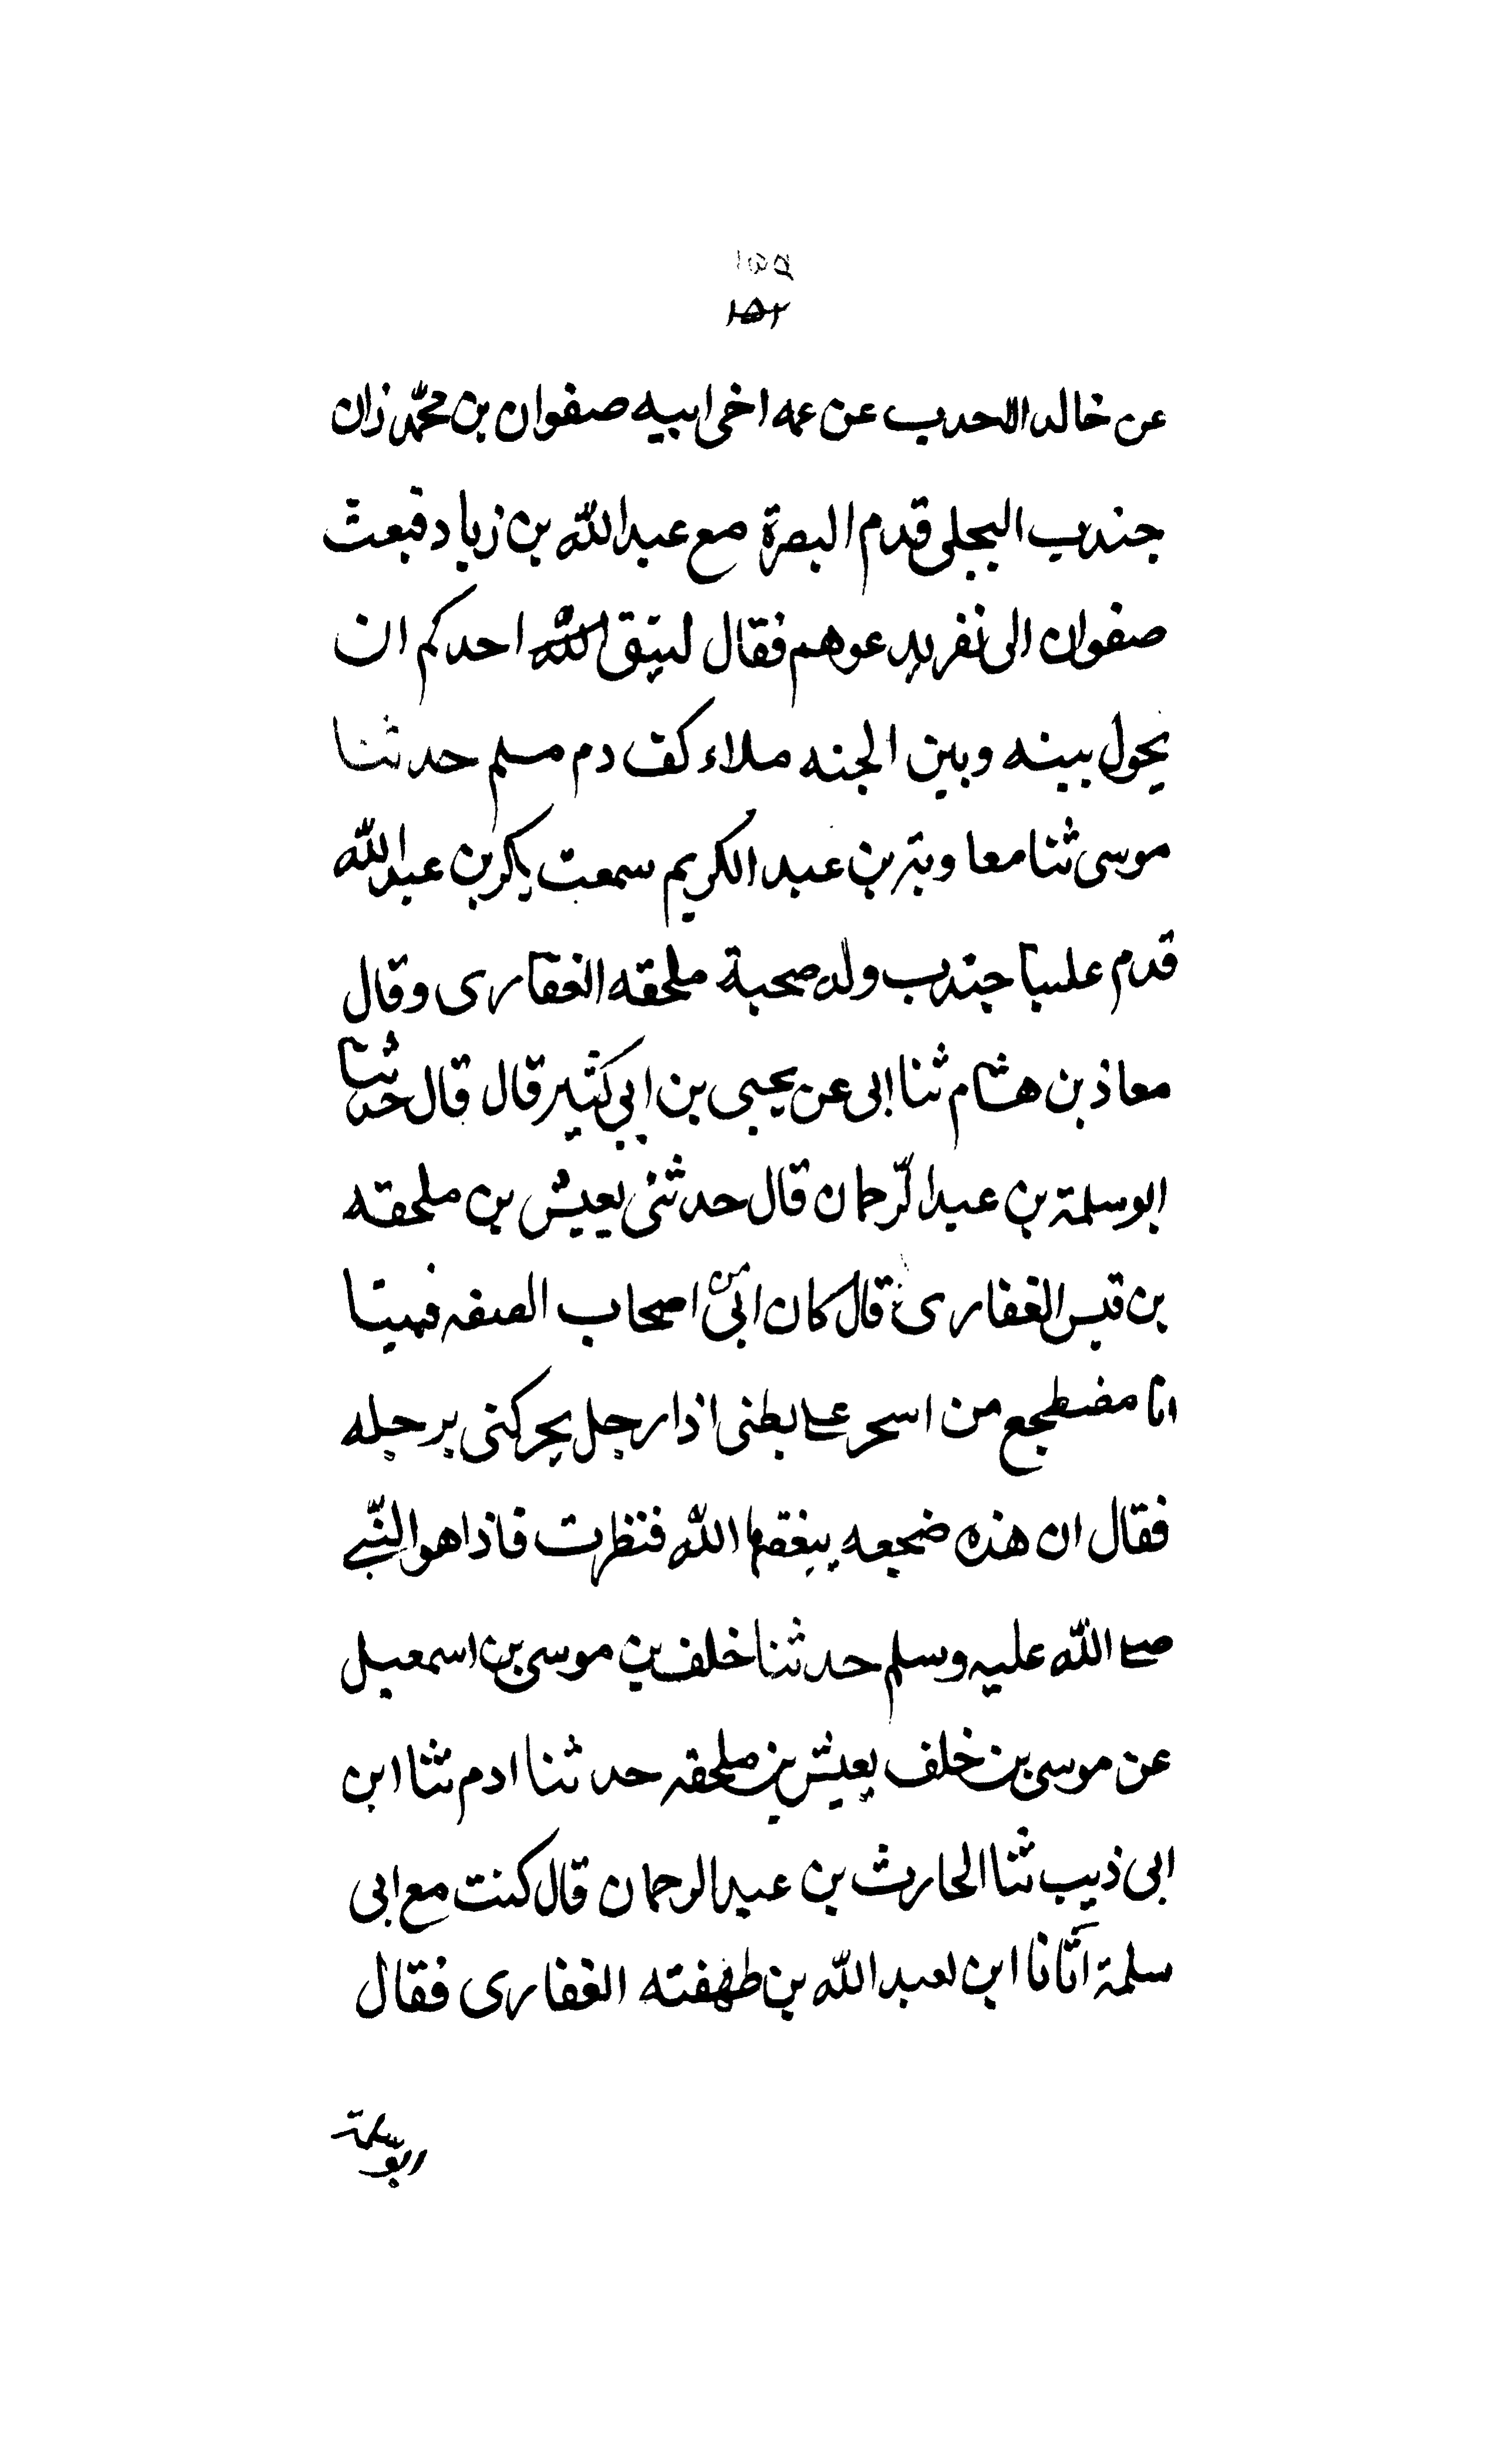 ١٥٥
١٥٢
عن خالد الاحدب عن عمه اخى ابيه صفوان بن محمد زان
جندب البجلى قدم البصرة مع عبدالله بن زياد فبعث
صفوان الى نفر يدعوهم فقال ليتق الله احدكم ان
يحول بينه وبين الجنه ملاء كف دم مسلم حدثنا
موسى ثنا معاوية بن عبد الكريم سمعت بكر بن عبدالله
قدم علينا جندب وله صحبة ملحقه الغفارى وقال
معاذ بن هشام ثنا ابى عن يحيى بن ابي كثير قال قال حدثنا
ابو سلمة بن عبد الرحمان قال حدثنى يعيش بن ملحقه
بن قيس الغفارى قال كان ابى من اصحاب الصفه فبينا
انا مضطجع من اسحر على بطنى اذا رجل يحركنى برجله
فقال ان هذه ضجعه يبغضها الله فنظرت فاذا هو النبى
صلى الله عليه وسلم حدثنا خلف بن موسى بن اسمعيل
عن موسى بن خلف يعيش بن ملحقه حدثنا ادم ثنا ابن
ابى ذيب ثنا الحارث بن عبد الرحمان قال كنت مع ابى
سلمة اتانا ابن لعبد الله بن طهفته الغفارى فقال
ابو سلمة